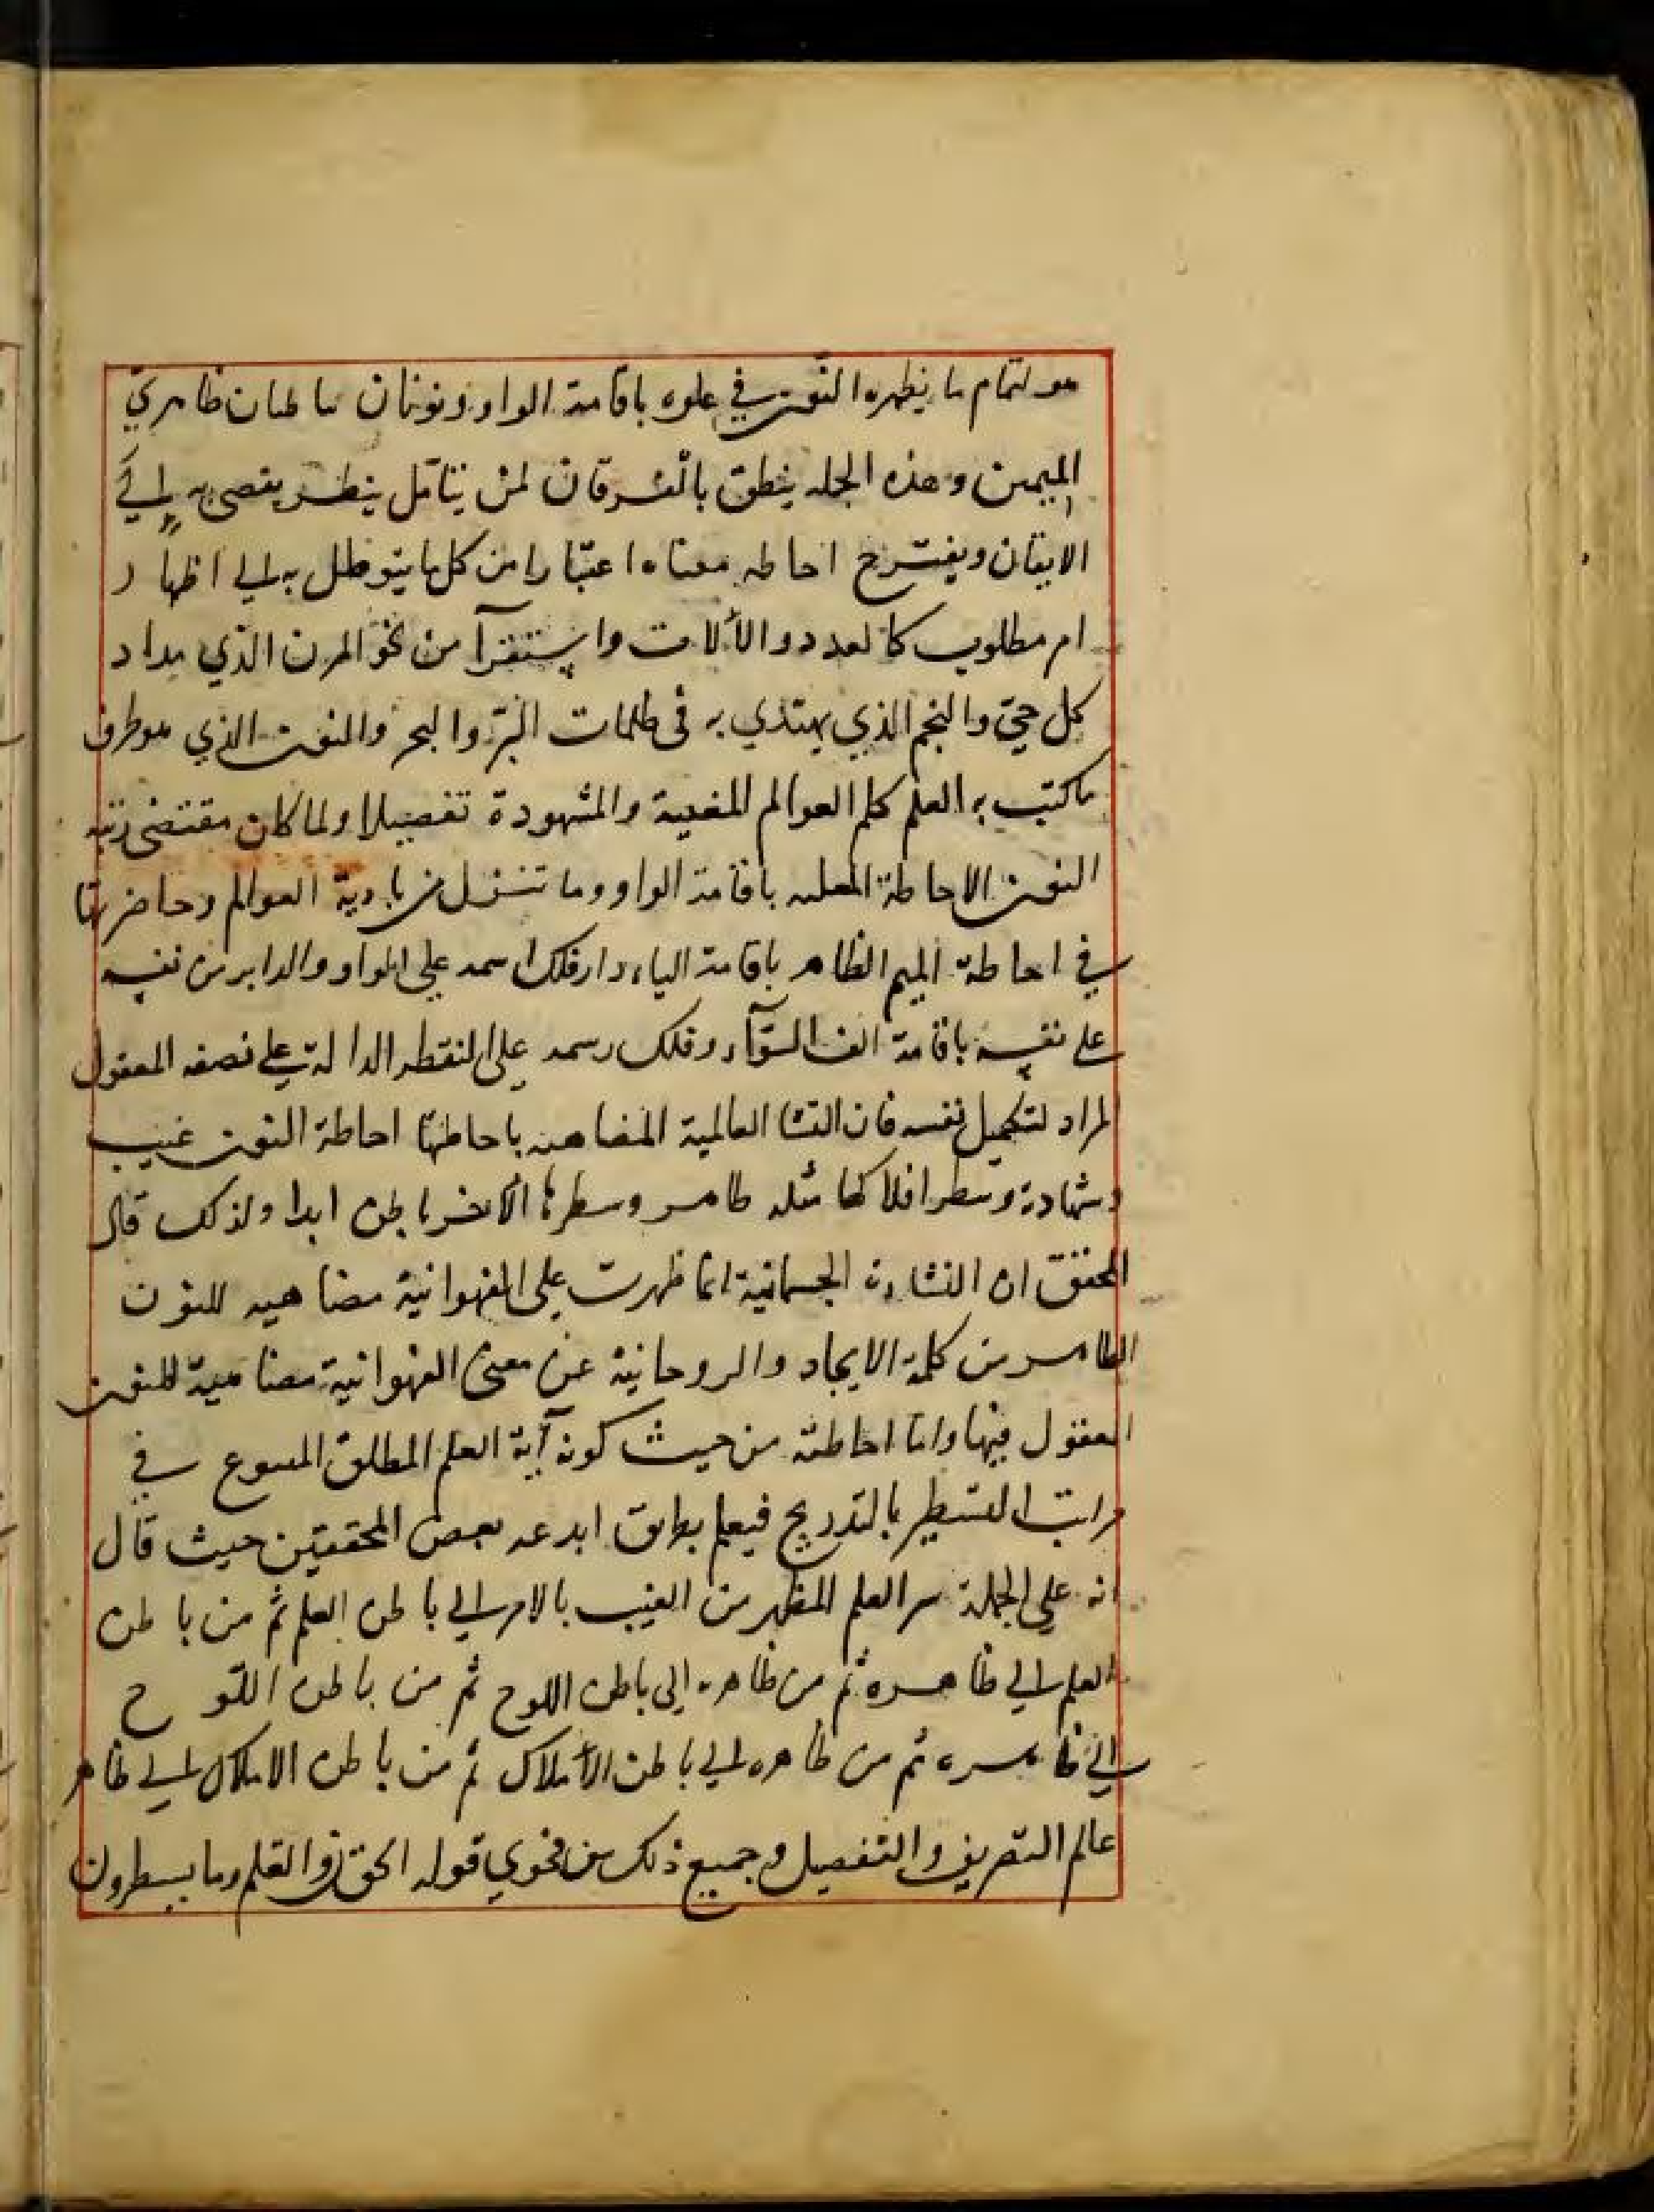 هو لتمام ما يظهره النون في علوه باقامة الواو ونونان باطنان ظاهري
الميمين وهذه الجمله ينطق بالفرقان لمن يتامل بنظر يقصى به الي
الايقان ويفترح احاطه معناه اعتبارا من كل ما يتوصل به الي اظهار
ام مطلوب كالعدد والآلات واستقرآ من نحو المزن الذي مداد
كل حيّ والنجم الذي يهتدي به فى ظلمات البرّ والبحر والنون الذي هو طرف
ما كتب به العلم كلم العوالم المغيبة والمشهودة تفصيلا ولما كان مقتضى رتبه
النون الاحاطة باقامة الواو وما تتنزل من بادية العوالم وحاضرتها
في احاطة الميم الظاهر باقامة الياء دار فلك اسمه على الواو والدابر من نفسه
على نفسه باقامة الف السوآء وفلك رسمه على النقطه الدالة على نصفه المعقول
المراد لتكميل نفسه فان النشا العالمية المضاهيه باحاطتها احاطة النون غيب
وشهادة وسطر افلاكها مثله ظاهر وسطرها الآخر باطن ابدا ولذلك قال
المحقق ان النشاءة الجسمانية انما ظهرت على الفهوانية مضاهيه للنون
الظاهر من كلمة الايجاد والروحانية عن معنى الفهوانية مضاهية للنون
المعقول فيها واما احاطته من حيث كونه آية العلم المطلق في
مراتب التسطير بالتدريج فيعلم بطريق ابدعه بعض المحققين حيث قال
انه على الجملة سر العلم المظهر من الغيب بالامر الي باطن العلم ثم من باطن
العلم الي ظاهره ثم من ظاهره إلى باطن اللوح ثم من باطن اللوح
الي ظاهره ثم من ظاهره الي باطن الأملاك ثم من باطن الاملاك الي ظاهر
عالم التصريف والتفصيل وجميع ذلك من فحوي قوله الحق ن والقلم وما يسطرون